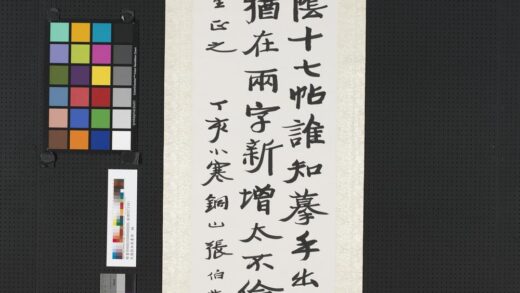 陰十七帖誰知摹手出
猶在兩字新增太不
正之 丁亥小寒銅山張伯